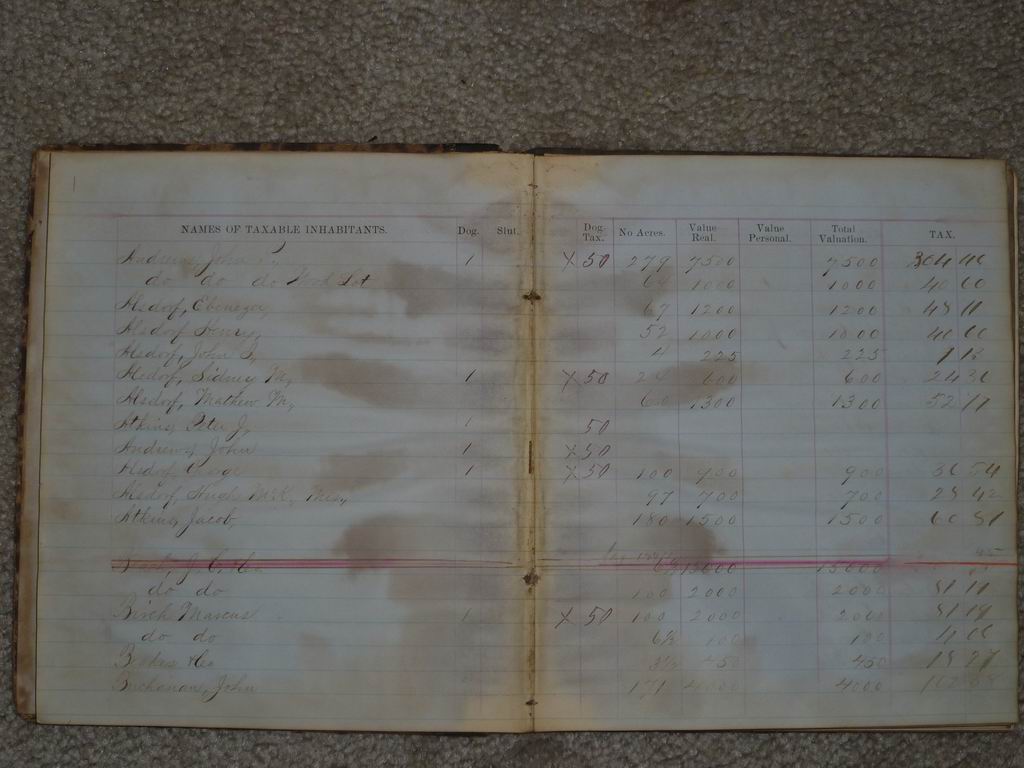 NAMES OF TAXABLE INHABITANTS. Dog. Slut. Dog. Tax. No Acres. Value Real. Value Personal. Total Valuation. TAX.
Andrews, John 1 X 50 279 7500 7500
do do do Wood Lot 1000 1000 40 60
Alsdorf, Ebenezer, 67 1200 1200 48
Alsdorf Henry, 52 1000 1000 40 60
Alsdorf, John 4 225 225
Alsdorf, Sidney M, 1 X 50 600 600 24 36
Alsdorf, Mathew M, 60 1300 1300 52
Atkins, Peter J, 1 50
Andrews, John 1 X 50
Alsdorf, George 1 X 50 100 900 900 36 54
Alsdorf, Hugh McK, 97 700 700 28 42
Atkins, Jacob 180 1500 1500 60
J. C. 15000
do do 100 2000 2000 81
Birch Marcus 1 X 50 100 2000 2000 81
do do 6½ 100 100 4 06
450 450 18 27
Buchanan, John 171 4000 4000 162